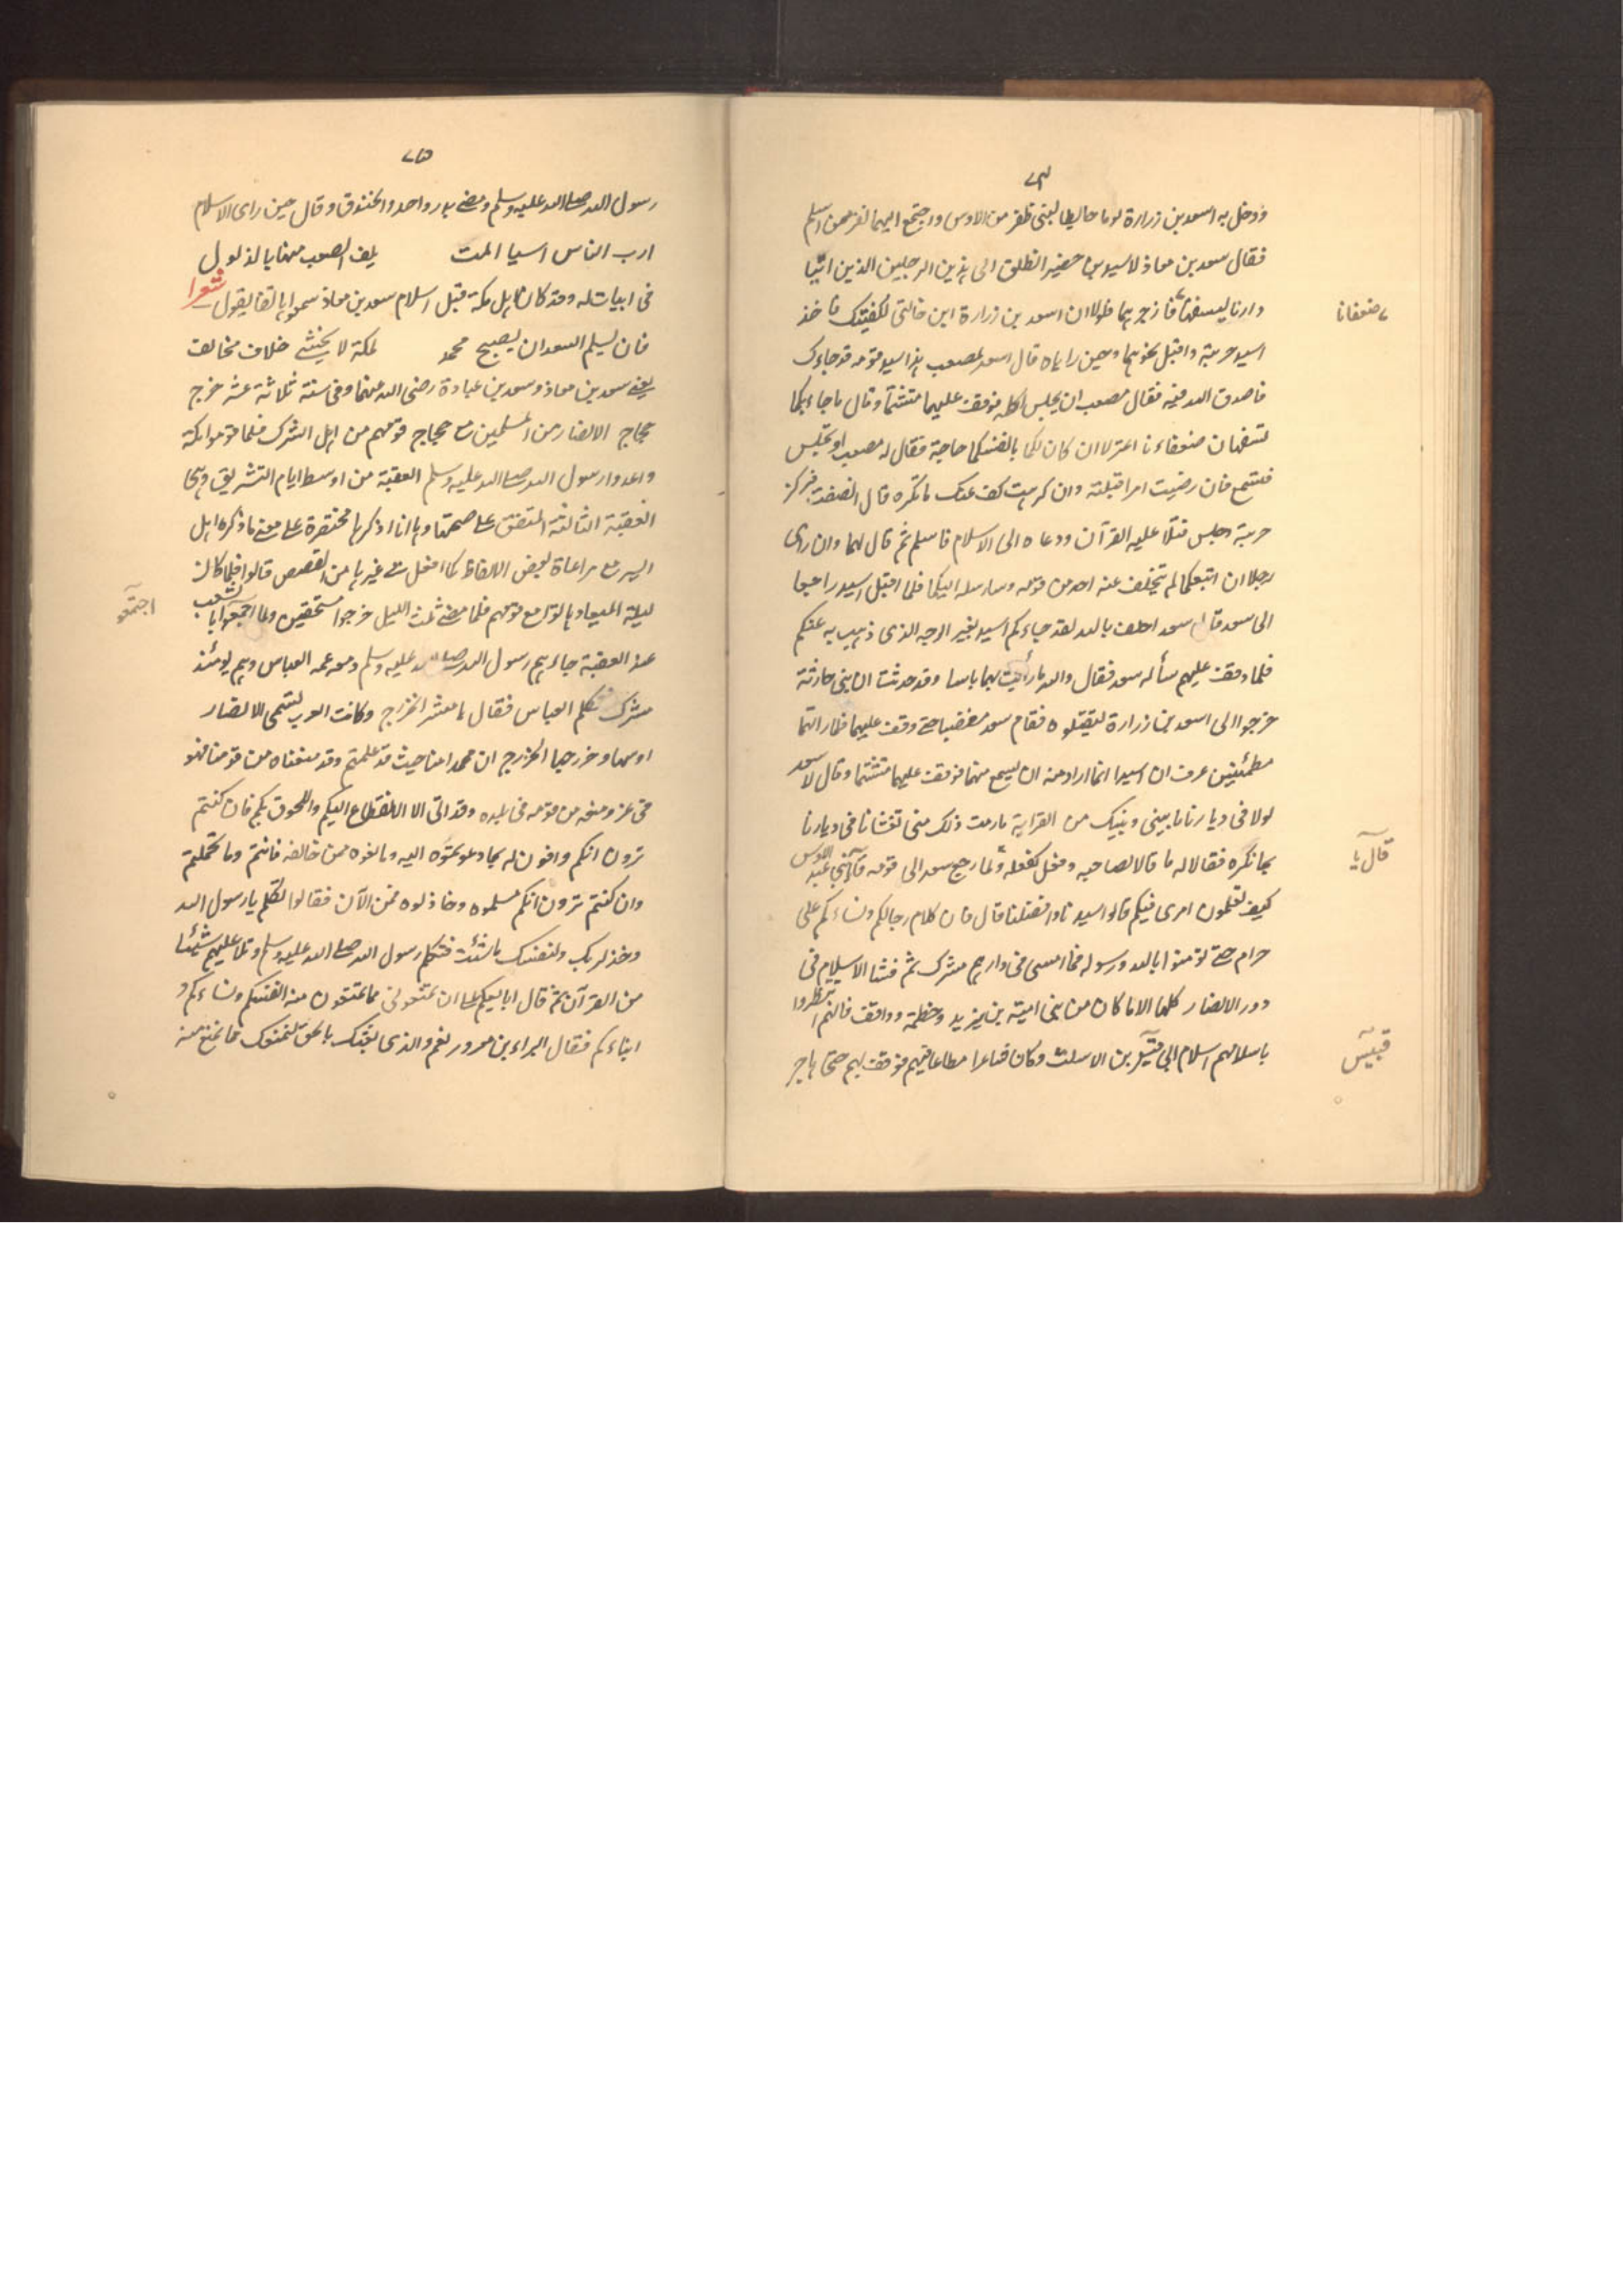 ودخل به اسعد بن زرارة يوما حايطا لبنى ظفر من الاوس واجتمع اليهما نفر ممن اسلم
فقال سعد بن معاذ لاسيد بن حضير انطلق الى هذين الرجلين الذين اتيا
دارنا ليسفها فازجرهما فلولا ان اسعد بن زرارة ابن خالتى لكفيتك فاخذ
ضعفانا
اسيد حربته واقبل نحوهما وحين راياه قال اسعد لمصعب هذا سيد قومه قد جاءك
فاصدق الله فيه فقال مصعب ان يجلس اكلمه فوقف عليهما متشتما وقال ما جاء بكما
تسفهان ضعفاءنا اعتزلا ان كان لكما بانفسكما حاجة فقال له مصعب او تجلس
فتسمع فان رضيت امرا قبلته وان كرهت كف عنك ما تكره قال انصفت فركز
حربته وجلس فتلا عليه القرآن ودعاه الى الاسلام فاسلم ثم قال لهما وان ورائى
رجلا ان اتبعكما لم يتخلف عنه احد من قومه وسارسله اليكما فلما اقبل اسيد راجعا
الى سعد قال سعد احلف بالله لقد جاءكم اسيد بغير الوجه الذى ذهب به عنكم
فلما وقف عليهم سأله سعد فقال والله ما رأيت بهما باسا وقد حدثت ان بنى حارثة
خرجوا الى اسعد بن زرارة ليقتلوه فقام سعد مغضبا حتى وقف عليهما فلما راهما
مطمئنين عرف ان اسيدا انما اراد منه ان يسمع منهما فوقف عليهما متشتما وقال لاسعد
لولا فى ديارنا ما بينى وبينك من القرابة ما رمت ذلك منى تغشانا فى ديارنا
بما نكره فقالا له ما قالا لصاحبه وفعل كفعله ولما رجع سعد الى قومه قال بنى عبد الاوس
قال يا
كيف تعلمون امرى فيكم قالوا سيدنا وافضلنا قال فان كلام رجالكم ونساءكم على
حرام حتى تؤمنوا بالله ورسوله فما امسى فى دارهم مشرك ثم فشا الاسلام فى
دور الانصار كلها الا ما كان من بنى امية بن يزيد وخطمة وواقف فانهم انتظروا
باسلامهم اسلام ابى قيس بن الاسلت وكان شاعرا مطاعا فيهم فوقف بهم حتى هاجر
قبيس
رسول الله صلى الله عليه وسلم ومضى بدر واحد والخندق وقال حين راى الاسلام
ارب الناس اسيا المت يلف الصعب منها بالذلول
فى ابيات له وقد كان اهل مكة قبل اسلام سعد بن معاذ سمعوا هاتفا يقول شعرا
فان يسلم السعدان يصبح محمد لمكة لا يخشى خلاف مخالف
يعنى سعد بن معاذ وسعد بن عبادة رضى الله عنهما وفى سنة ثلاثة عشر خرج
حجاج الانصار من المسلمين مع حجاج قومهم من اهل الشرك فلما قدموا مكة
واعدوا رسول الله صلى الله عليه وسلم العقبة من اوسط ايام التشريق وهى
العقبة الثالثة المتفق على صحتها وها انا اذكرها مختصرة على معنى ما ذكره اهل
السير مع مراعاة لبعض الالفاظ كما افعل فى غيرها من القصص قالوا فلما كان
ليلة الميعاد باتوا مع قومهم فلما مضى ثلث الليل خرجوا مستخفين ولما اجمعوا بالشعب
اجتمعو
عند العقبة جاءهم رسول الله صلى الله عليه وسلم ومعه عمه العباس وهم يومئذ
مشرك فتكلم العباس فقال يا معشر الخزرج وكانت العرب تسمى الانصار
اوسها وخزرجها الخزرج ان محمدا منا حيث قد علمتم وقد منعناه من قومنا فهو
فى عز ومنعه من قومه فى بلده وقد اتى الا الانقطاع اليكم واللحوق بكم فان كنتم
ترون انكم وافون له بما دعوتموه اليه ومانعوه ممن خالفه فانتم وما تحملتم
وان كنتم ترون انكم مسلموه وخاذلوه فمن الآن فقالوا تكلم يا رسول الله
وخذ لربك ولنفسك ما شئت فتكلم رسول الله صلى الله عليه وسلم وتلا عليهم شيئا
من القرآن ثم قال ابايعكم على ان تمنعونى مما تمنعون منه انفسكم ونساءكم و
ابناءكم فقال البراء بن معرور نعم والذى بعثك بالحق لنمنعك مما نمنع منه